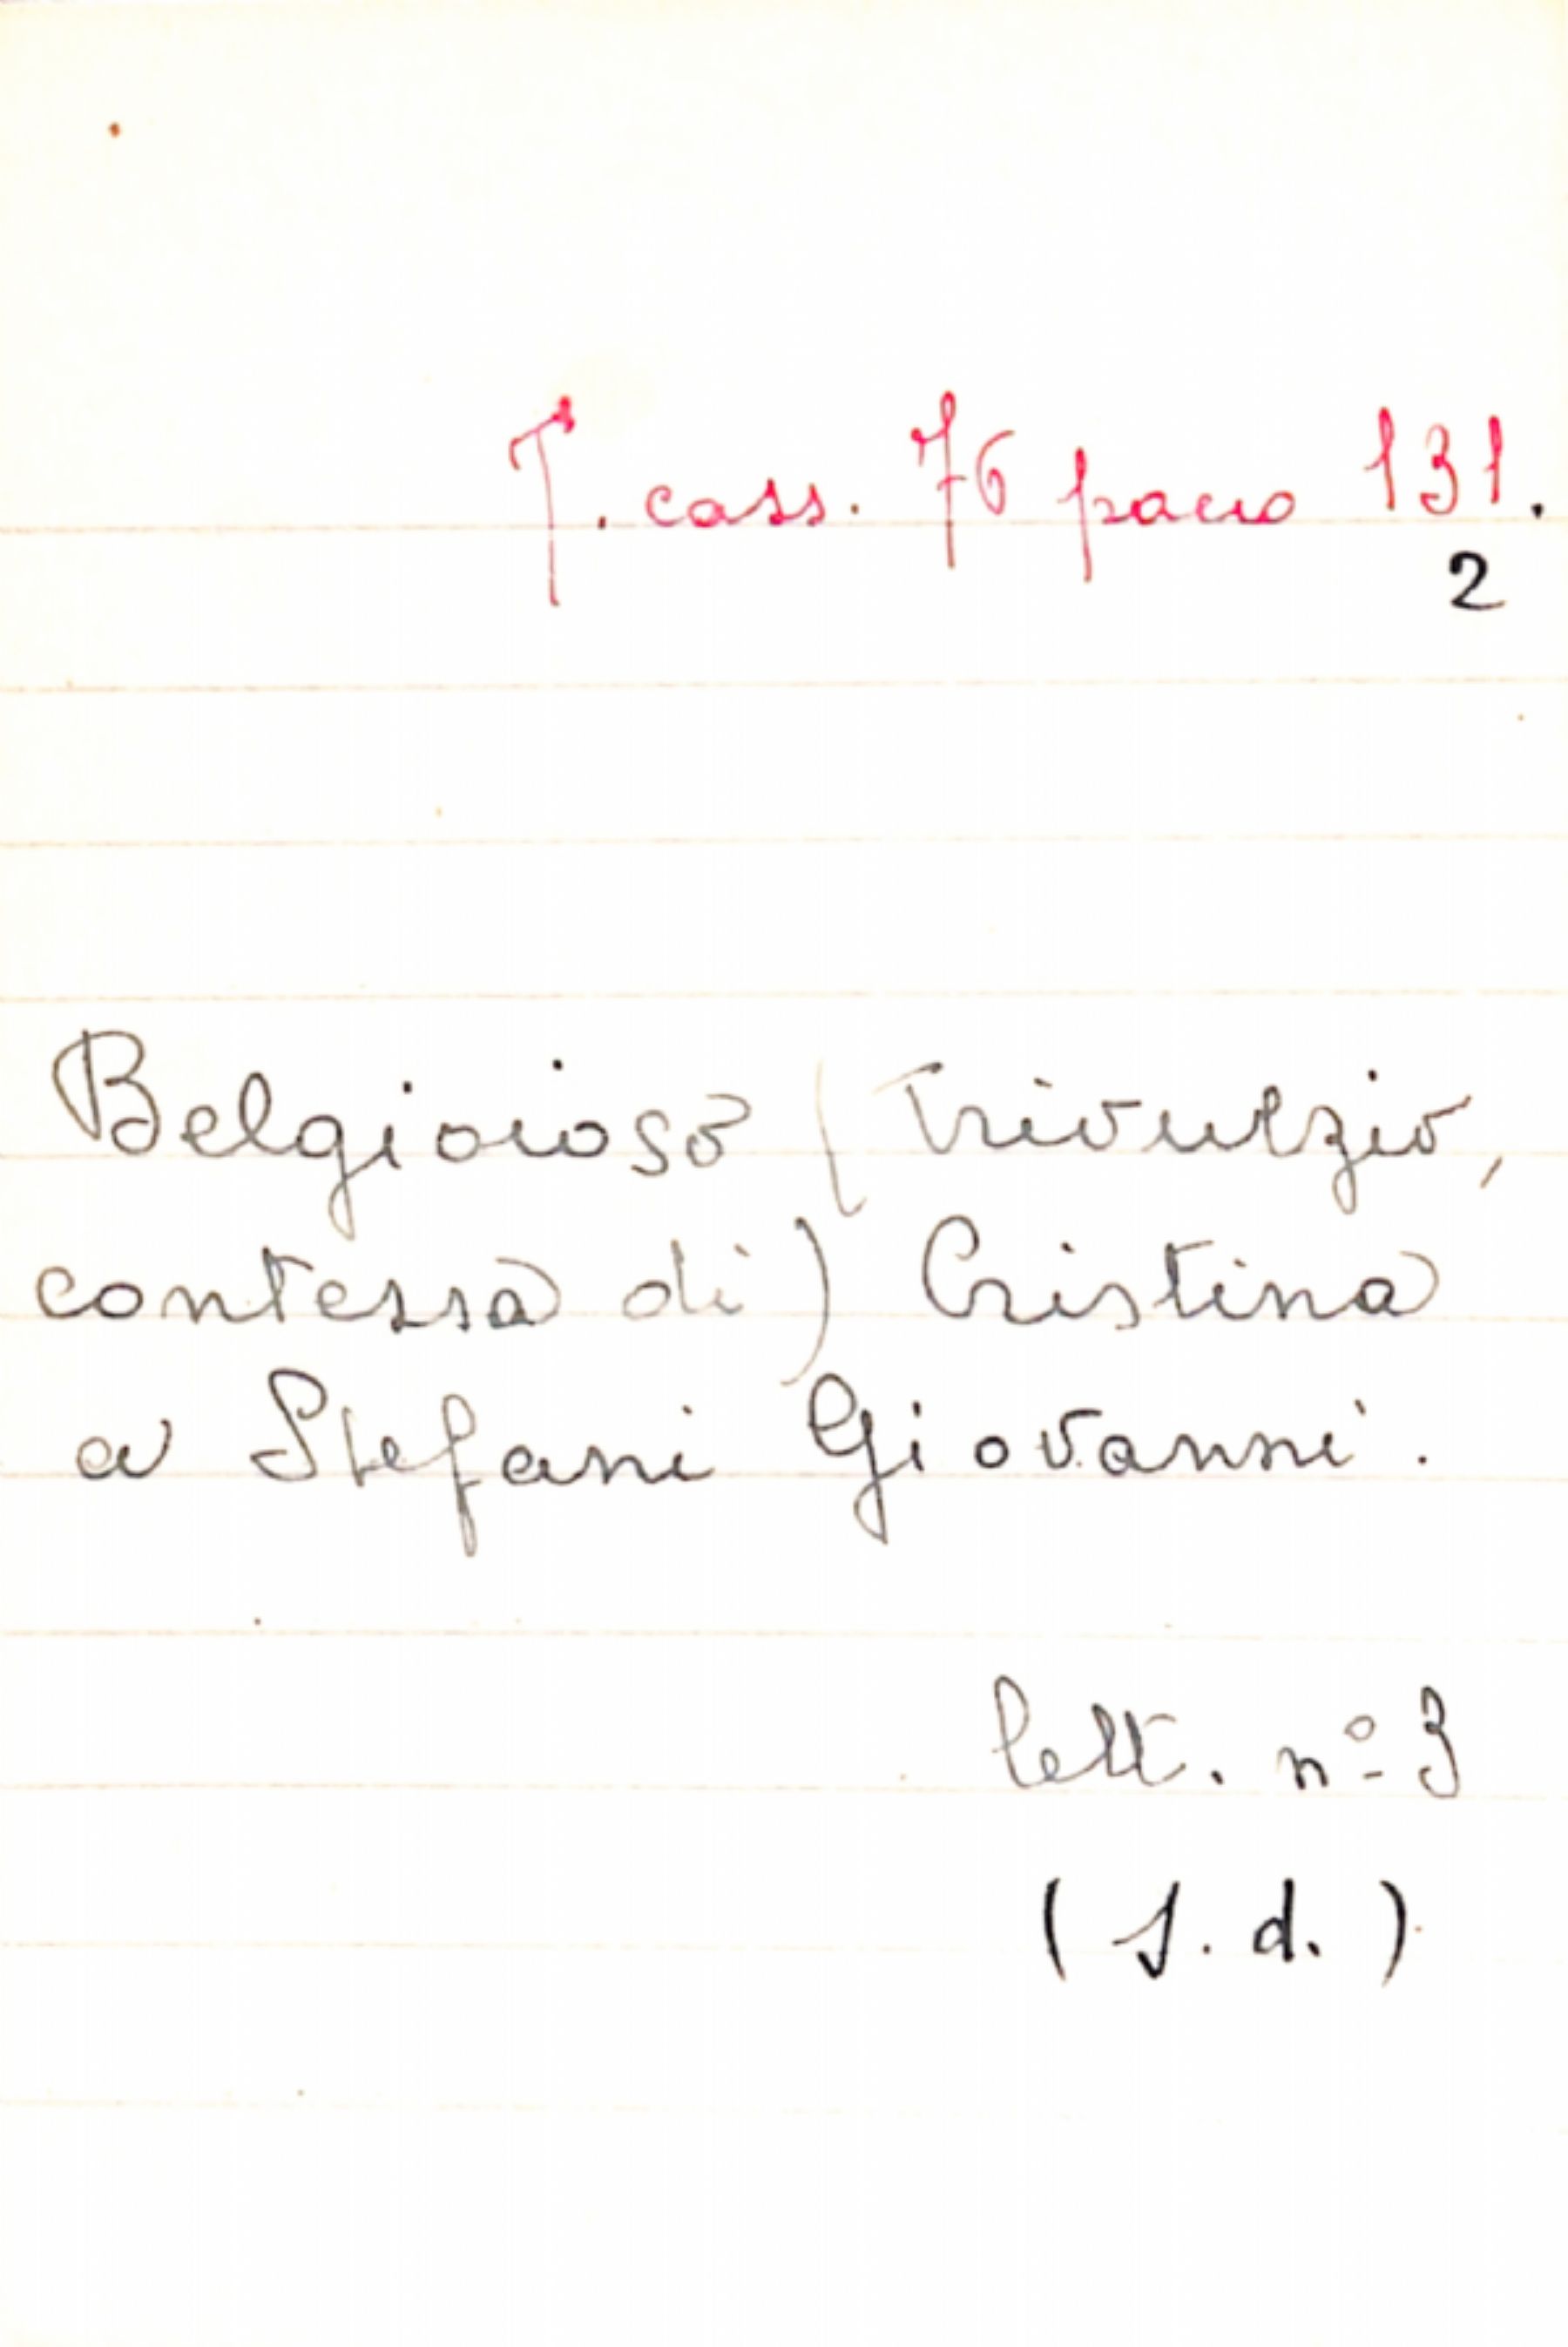 T. cass. 76 pacco 131.
2
Belgioioso (Trivulzio,
contessa di) Cristina
a Stefani Giovanni.
lett. nº 3
(s. d.)